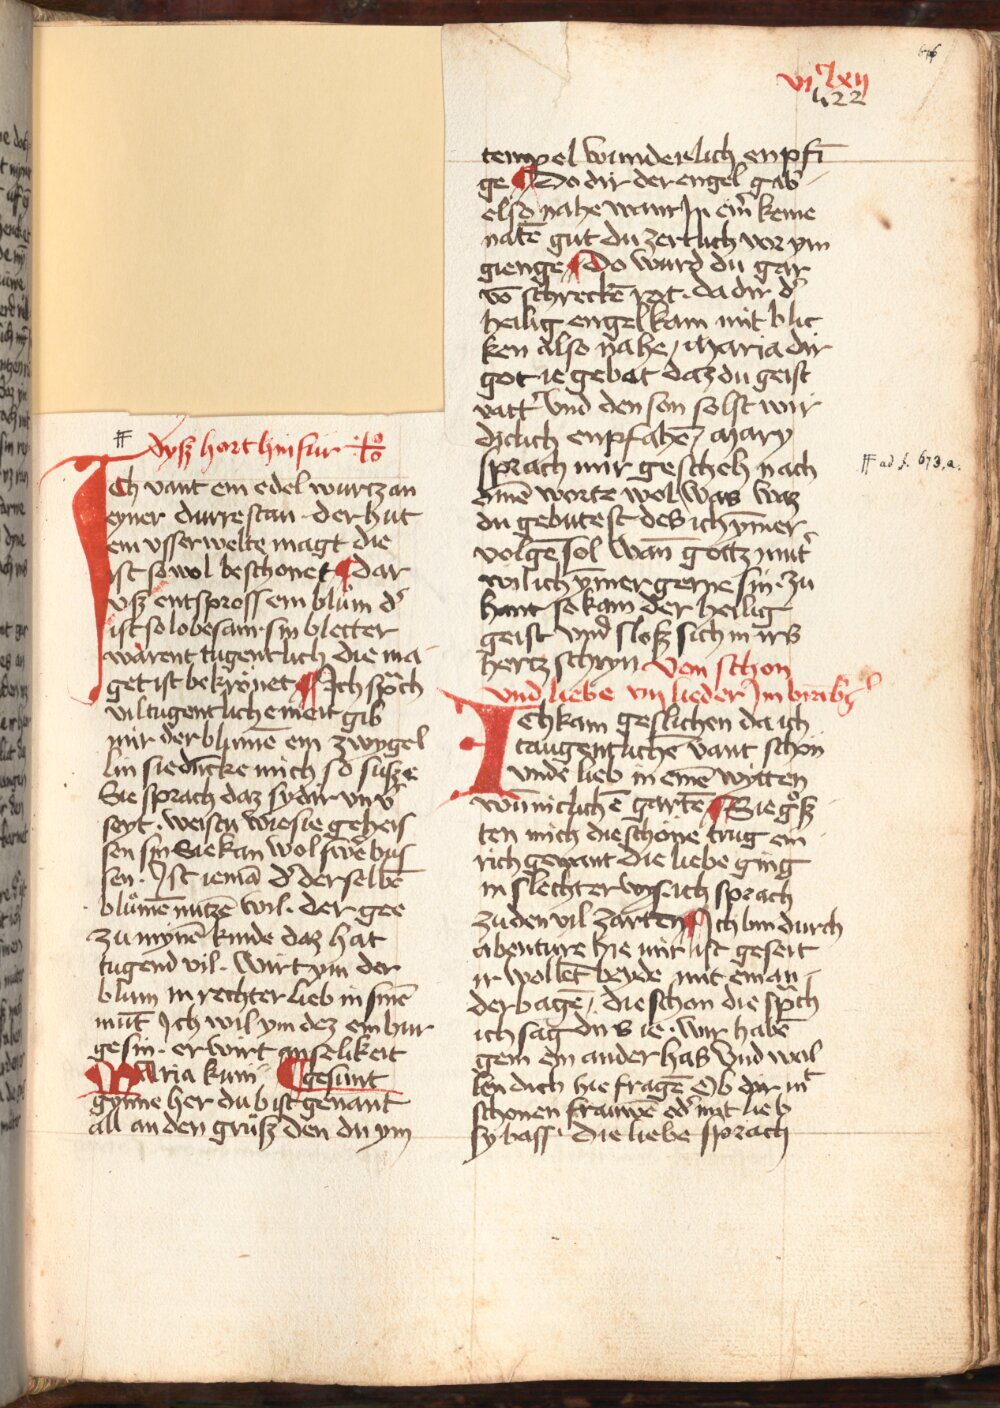 vi lxij
422
dysz hort hin fur
Ich vant ein edel wurtz an
eyner durre stan · der hut
ein vsserwelte magt die
ist so wol beschonet Dar
vsz entspross ein blům d'
ist so lobesam · sin bletter
warent tugentlich die ma-
get ist bekrönet Ich sprach
vil tugentlich e meit gib
mir der blumē ein zwygel
lin sie duncke mich so susze
Sie sprach daz sy dir vnv'
seyt · weistu wie sie geheis
sen sin Sie kan wol swē bus
sen · Ist iemā d' derselbē
blůmē nutzē wil · der gee
zu mynē kinde daz hat
tugend vil · Wirt ym der
blum in rechter lieb in sinē
mut Ich wil ym dez ein bur
ge sin · er wirt an selikeit
Maria kuni gesunt
gynne her du bist genant
all an den grůsz den du ym
tempel wunderlich enpfi
ge Do dir der engel gab
elso nahe want In ein' keme
natē gut du zertlich vor ym
gienge Do wurd du gar
vō schreckē rot · da dir d'
heilig engel kam mit blic
ken also nahe / Maria dir
got ie gebot daz du geist
vatt' vnd den son solst wir
dyclich enpfahē / Mary
sprach mir gescheh nach
dinē worte wol was waz
du gebutest des ich ymer
volgē sol Wan gottz mut'
wil ich ymer gerne sin · zu
hant so kam der heilig
geist vnd slosz sich in irs
hertz schryn Von schon
vnd liebe vij lieder Im
Ich kam geslichen da ich
taugentlichē vant schon
vnde lieb in einē wytten
wūniclichē gartē Sie gůsz
ten mich die schone trug ein
rich gewant die liebe ging
in slechter wyse ich sprach
zu den vil zarten Ich bin durch
abenture hie mit list geseit
ir wollet beyde mit ein an-
der bagē / die schon die sprach
ich sag dirs ie · wir habē
gein ein ander has vnd wil
len dich hie fragē Ob dir mt
schonen frauwē od' mit lieb
sy bass · die liebe sprach
ad f. 673, a.